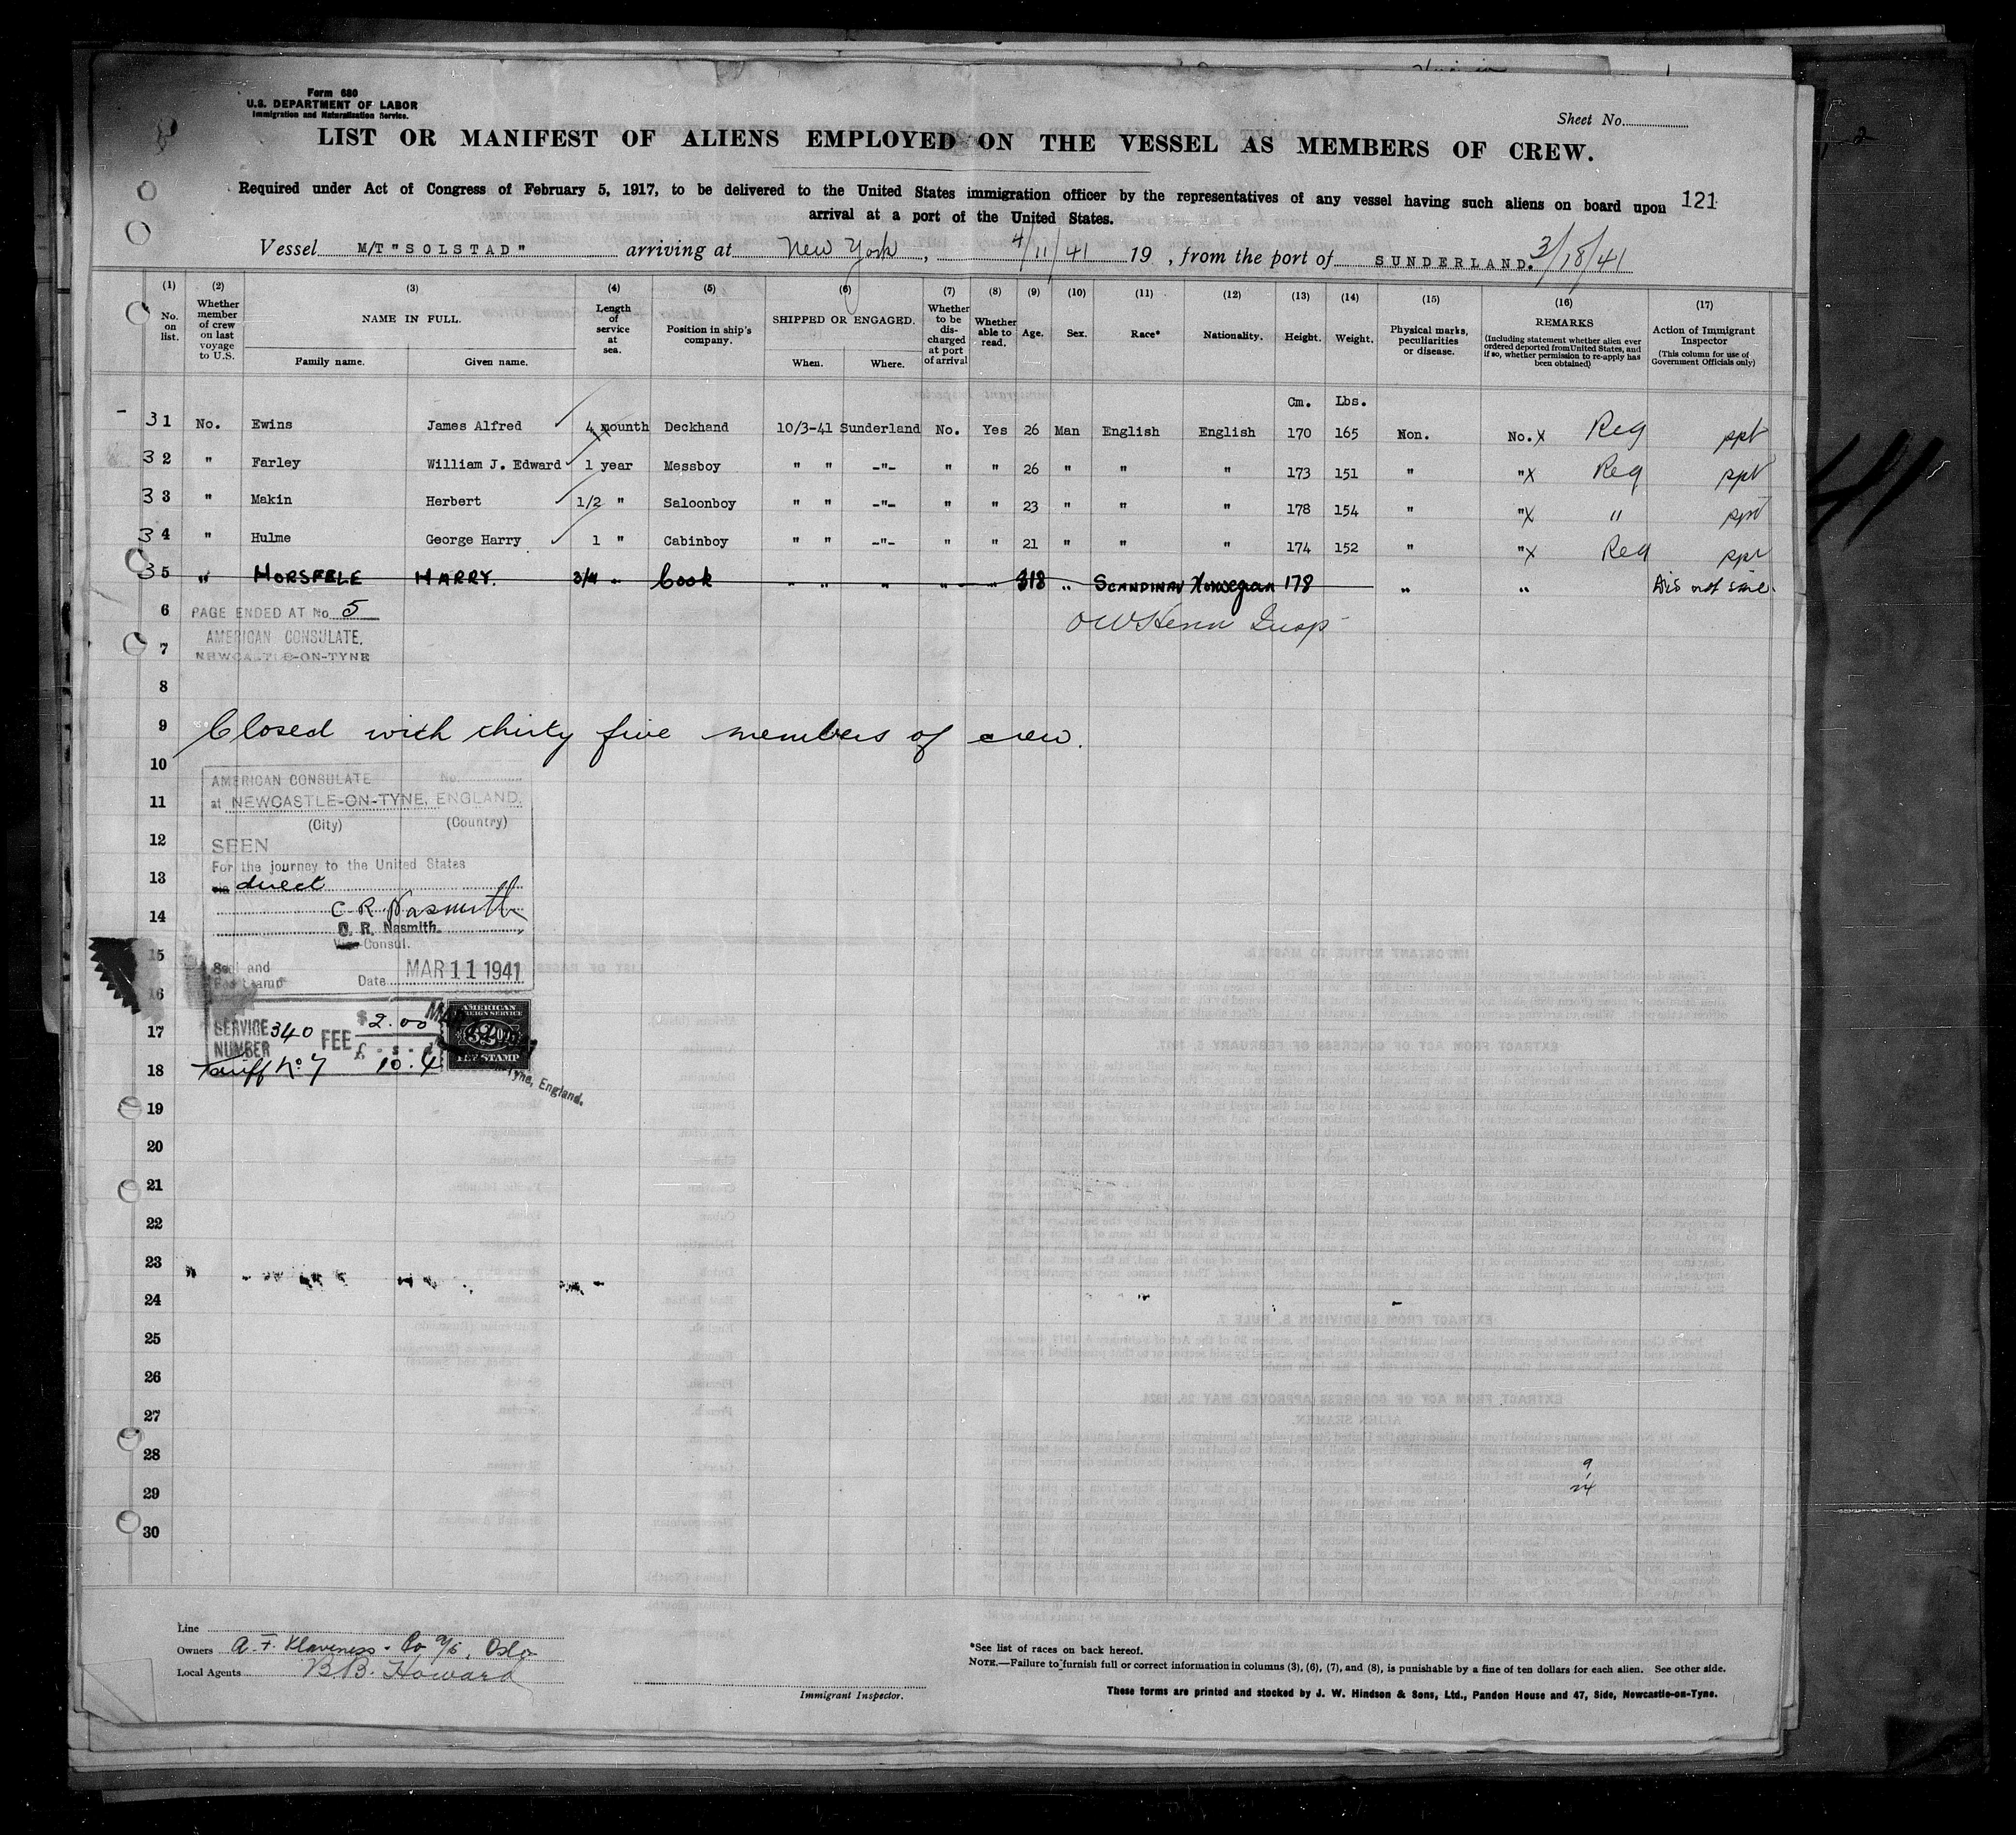 Form 680
U.S. DEPARTMENT OF LABOR
Immigration and Naturalization Service.
Sheet No.
LIST OR MANIFEST OF ALIENS EMPLOYED ON THE VESSEL AS MEMBERS OF CREW.
Required under Act of Congress of February 5, 1917, to be delivered to the United States immigration officer by the representatives of any vessel having such aliens on board upon
arrival at a port of the United States.
121
Vessel M/T "SOLSTAD" arriving at New York, 4/11/41 19 , from the port of SUNDERLAND. 3/18/41
(1) No. on list. (2) Whether member of crew on last voyage to U.S. (3) NAME IN FULL. Family name. Given name. (4) Length of service at sea. (5) Position in ship's company. (6) SHIPPED OR ENGAGED. When. Where. (7) Whether to be discharged at port of arrival (8) Whether able to read. (9) Age. (10) Sex. (11) Race* (12) Nationality. (13) Height. (14) Weight. (15) Physical marks, peculiarities or disease. (16) REMARKS (Including statement whether alien ever ordered deported from United States, and if so, whether permission to re-apply has been obtained) (17) Action of Immigrant Inspector (This column for use of Government Officials only)
Cm. Lbs.
31 No. Ewins James Alfred 4 mounth Deckhand 10/3-41 Sunderland No. Yes 26 Man English English 170 165 Non. No. X Reg ppt
32 " Farley William J. Edward 1 year Messboy " " -"- " " 26 " " " 173 151 " " X Reg ppt
33 " Makin Herbert 1/2 " Saloonboy " " -"- " " 23 " " " 178 154 " " X " ppt
34 " Hulme George Harry 1 " Cabinboy " " -"- " " 21 " " " 174 152 " " X Reg ppt
35 " HARRY. 3/4 " Cook " " " " " " SCANDINAV Norwegian 178 " " Did not sail.
6 PAGE ENDED AT No 5
AMERICAN CONSULATE,
7 NEWCASTLE-ON-TYNE
8
9 Closed with thirty five members of crew.
10
AMERICAN CONSULATE No.
11 at NEWCASTLE-ON-TYNE, ENGLAND.
(City) (Country)
12 SEEN
For the journey to the United States
13 direct
14 C. R. Nasmith
C. R. Nasmith.
15 Vice Consul.
Seal and
Fee Stamp Date MAR 11 1941
16
17 SERVICE NUMBER 340 FEE $ 2.00
£ - s - d
AMERICAN FOREIGN SERVICE $2.00 FEE STAMP
18 Tariff No 7 10.4
Tyne, England.
19
20
21
22
23
24
25
26
27
28
29
30
Line
Owners A. F. Klaveness & Co A/S, Oslo
Local Agents B.B. Howard
Immigrant Inspector.
*See list of races on back hereof.
NOTE.—Failure to furnish full or correct information in columns (3), (6), (7), and (8), is punishable by a fine of ten dollars for each alien. See other side.
These forms are printed and stocked by J. W. Hindson & Sons, Ltd., Pandon House and 47, Side, Newcastle-on-Tyne.